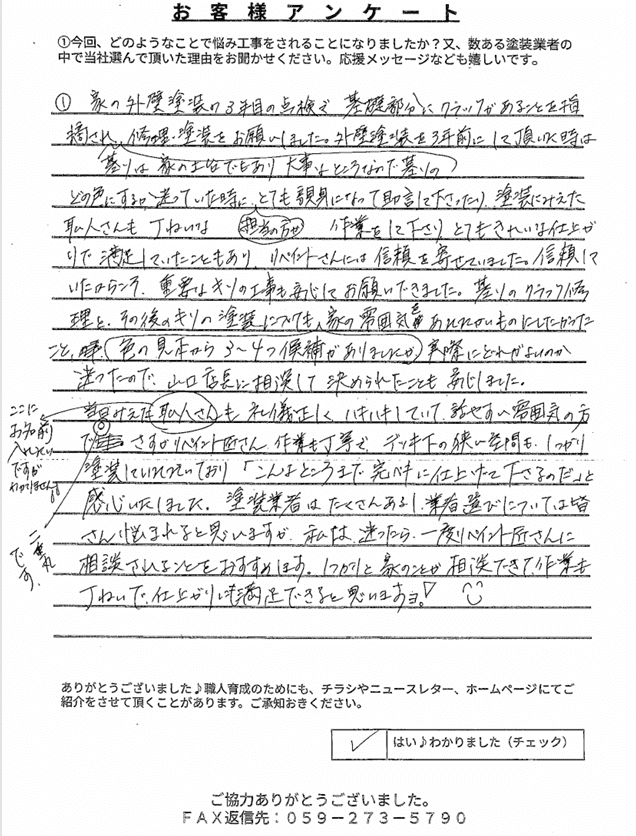 お客様アンケート
①今回、どのようなことで悩み工事をされることになりましたか？又、数ある塗装業者の
中で当社選んで頂いた理由をお聞かせください。応援メッセージなども嬉しいです。
① 家の外壁塗装の3年目の点検で 基礎部分にクラックがあることを指
摘され、修理・塗装をお願いしました。外壁塗装を3年前にして頂いた時は
基りは家の土台でもあり 大事なところなので基りの
どの色にするか迷っていた時に、とても親身になって助言して下さったり、塗装にみえた
職人さんも丁ねいな 担当の方が 作業をして下さり とてもきれいな仕上が
りで満足していたこともあり、リペイントさんには信頼を寄せていました。信頼して
いたからこそ、重要なキソの工事も安心してお願いできました。基りのクラック修
理と、その後のキソの塗装についても、家の雰囲気を
ものにしたかった
こと、 色の見本から3〜4つ候補がありましたが 実際にどれがよいのか
迷ったので、山口店長に相談して決められたことも安心しました。
みえた職人さんも礼儀正しく、ハキハキしていて、話やすい雰囲気の方
で さすがリペイント匠さん 作業も丁寧で、デッキ下の狭い空間も、しっかり
塗装していただいており「こんなところまで完ペキに仕上げて下さるのだ」と
感心いたしました。塗装業者はたくさんあるし、業者選びについては皆
さん悩まれると思いますが、私は、迷ったら、一度リペイント匠さんに
相談されることをおすすめします。しっかりと家のことが相談できて、作業も
丁ねいで、仕上がりにも満足できると思いますヨ。
ここに
お名前
入れたい
ですが
です。
ありがとうございました♪職人育成のためにも、チラシやニュースレター、ホームページにてご
紹介をさせて頂くことがあります。ご承知おきください。
✓ はい♪わかりました（チェック）
ご協力ありがとうございました。
ＦＡＸ返信先：０５９－２７３－５７９０